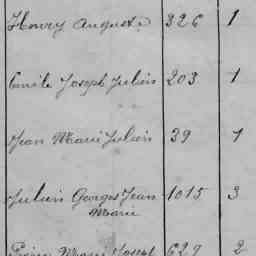 Henry Auguste 326 1
Emile Joseph Julien 203 1
Jean Marie Julien 39 1
Julien Georges Jean 1015 3
Marie
Pierre Marie Joseph 629 2